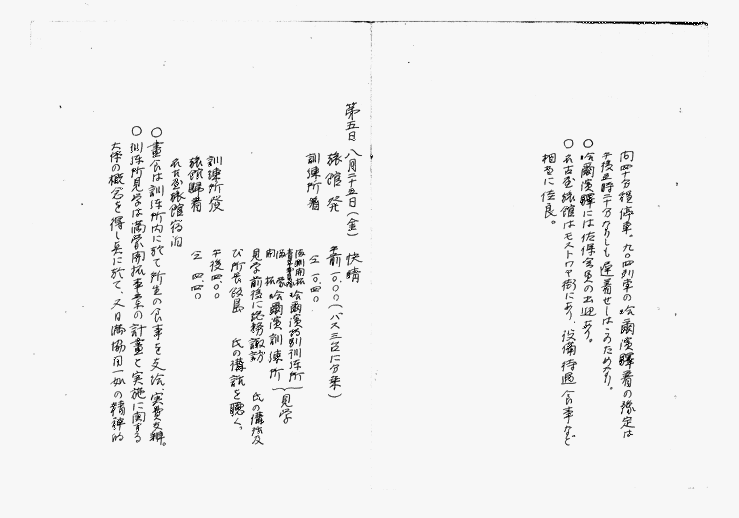 間四十分程停車。九〇四列車の哈爾濱驛着の豫定は
午後五時二十分なりしも遅着せしはこのためなり。
〇哈爾濱驛には佐保会員の出迎あり。
〇名古屋旅館はモストワヤ街にあり、設備待遇食事など
相当に佳良。
第五日 八月二十五日(金) 快晴
旅館発 午前一〇、〇〇(バス三台に分乗)
訓練所着 〃 一〇、四〇
哈爾濱特別訓練所
哈爾濱訓練所 見学
見学前後に総務諏訪 氏の講話及
び所長飯島 氏の講話を聴く、
訓練所発 午後四、〇〇
旅館歸着 〃 四、四〇
名古屋旅館宿泊
〇晝食は訓練所内に於て所生の食事を支給 実費支辨。
〇訓練所見学は満蒙開拓事業の計畫と実施に関する
大体の概念を得し共に於て、又日満協同一如の精神的